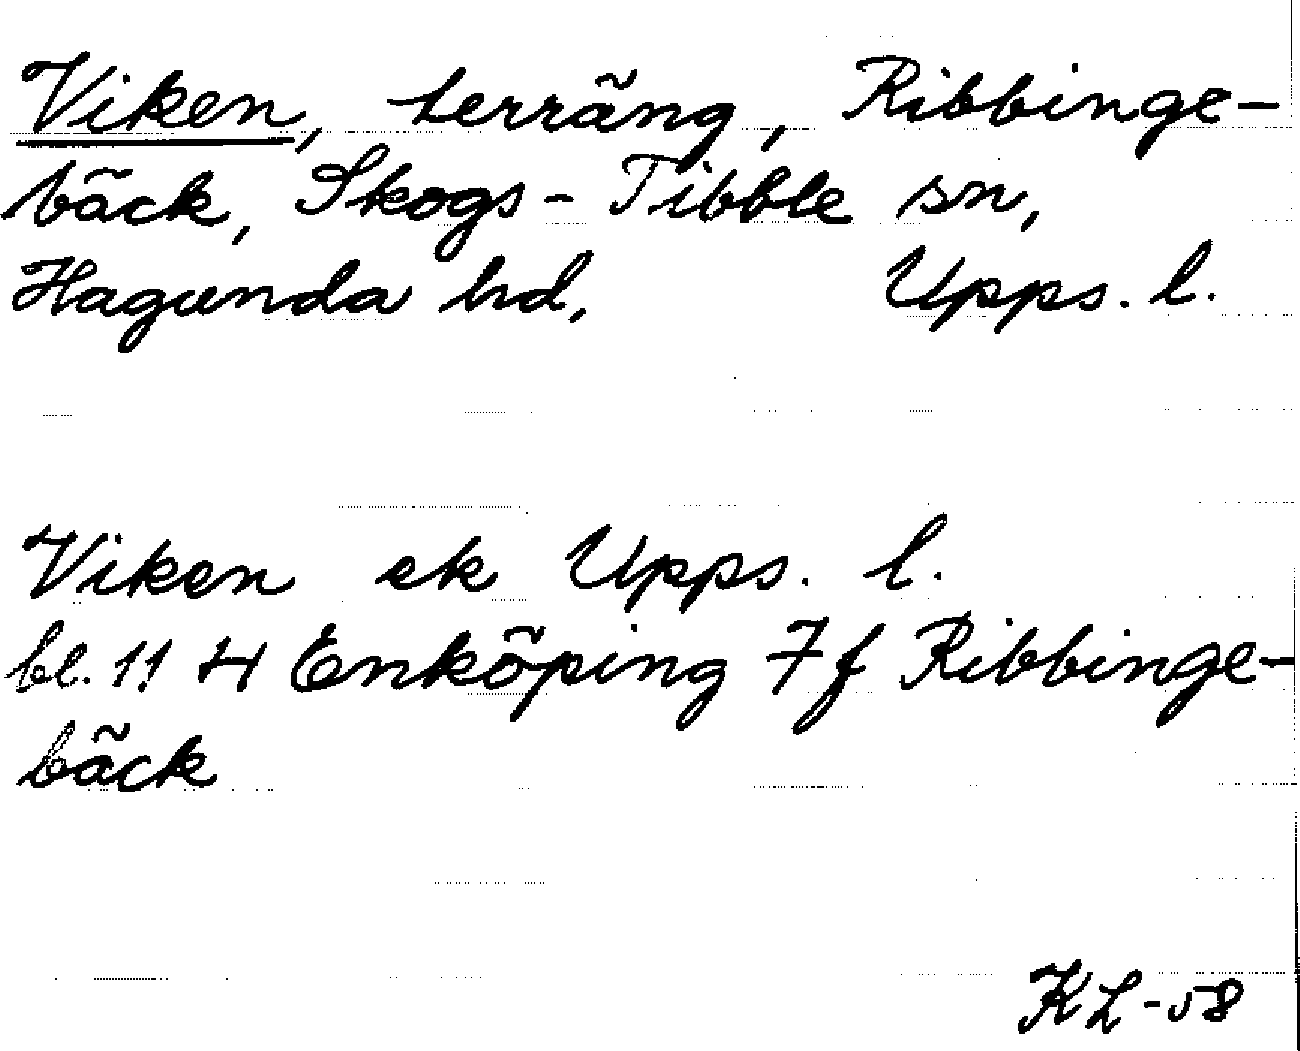 Viken, terräng, Ribbinge-
bäck, Skogs-Tibble sn,
Hagunda hd, Upps. l.
Viken ek Upps. l.
bl. 11 H Enköping 7f Ribbinge-
bäck
KL-58